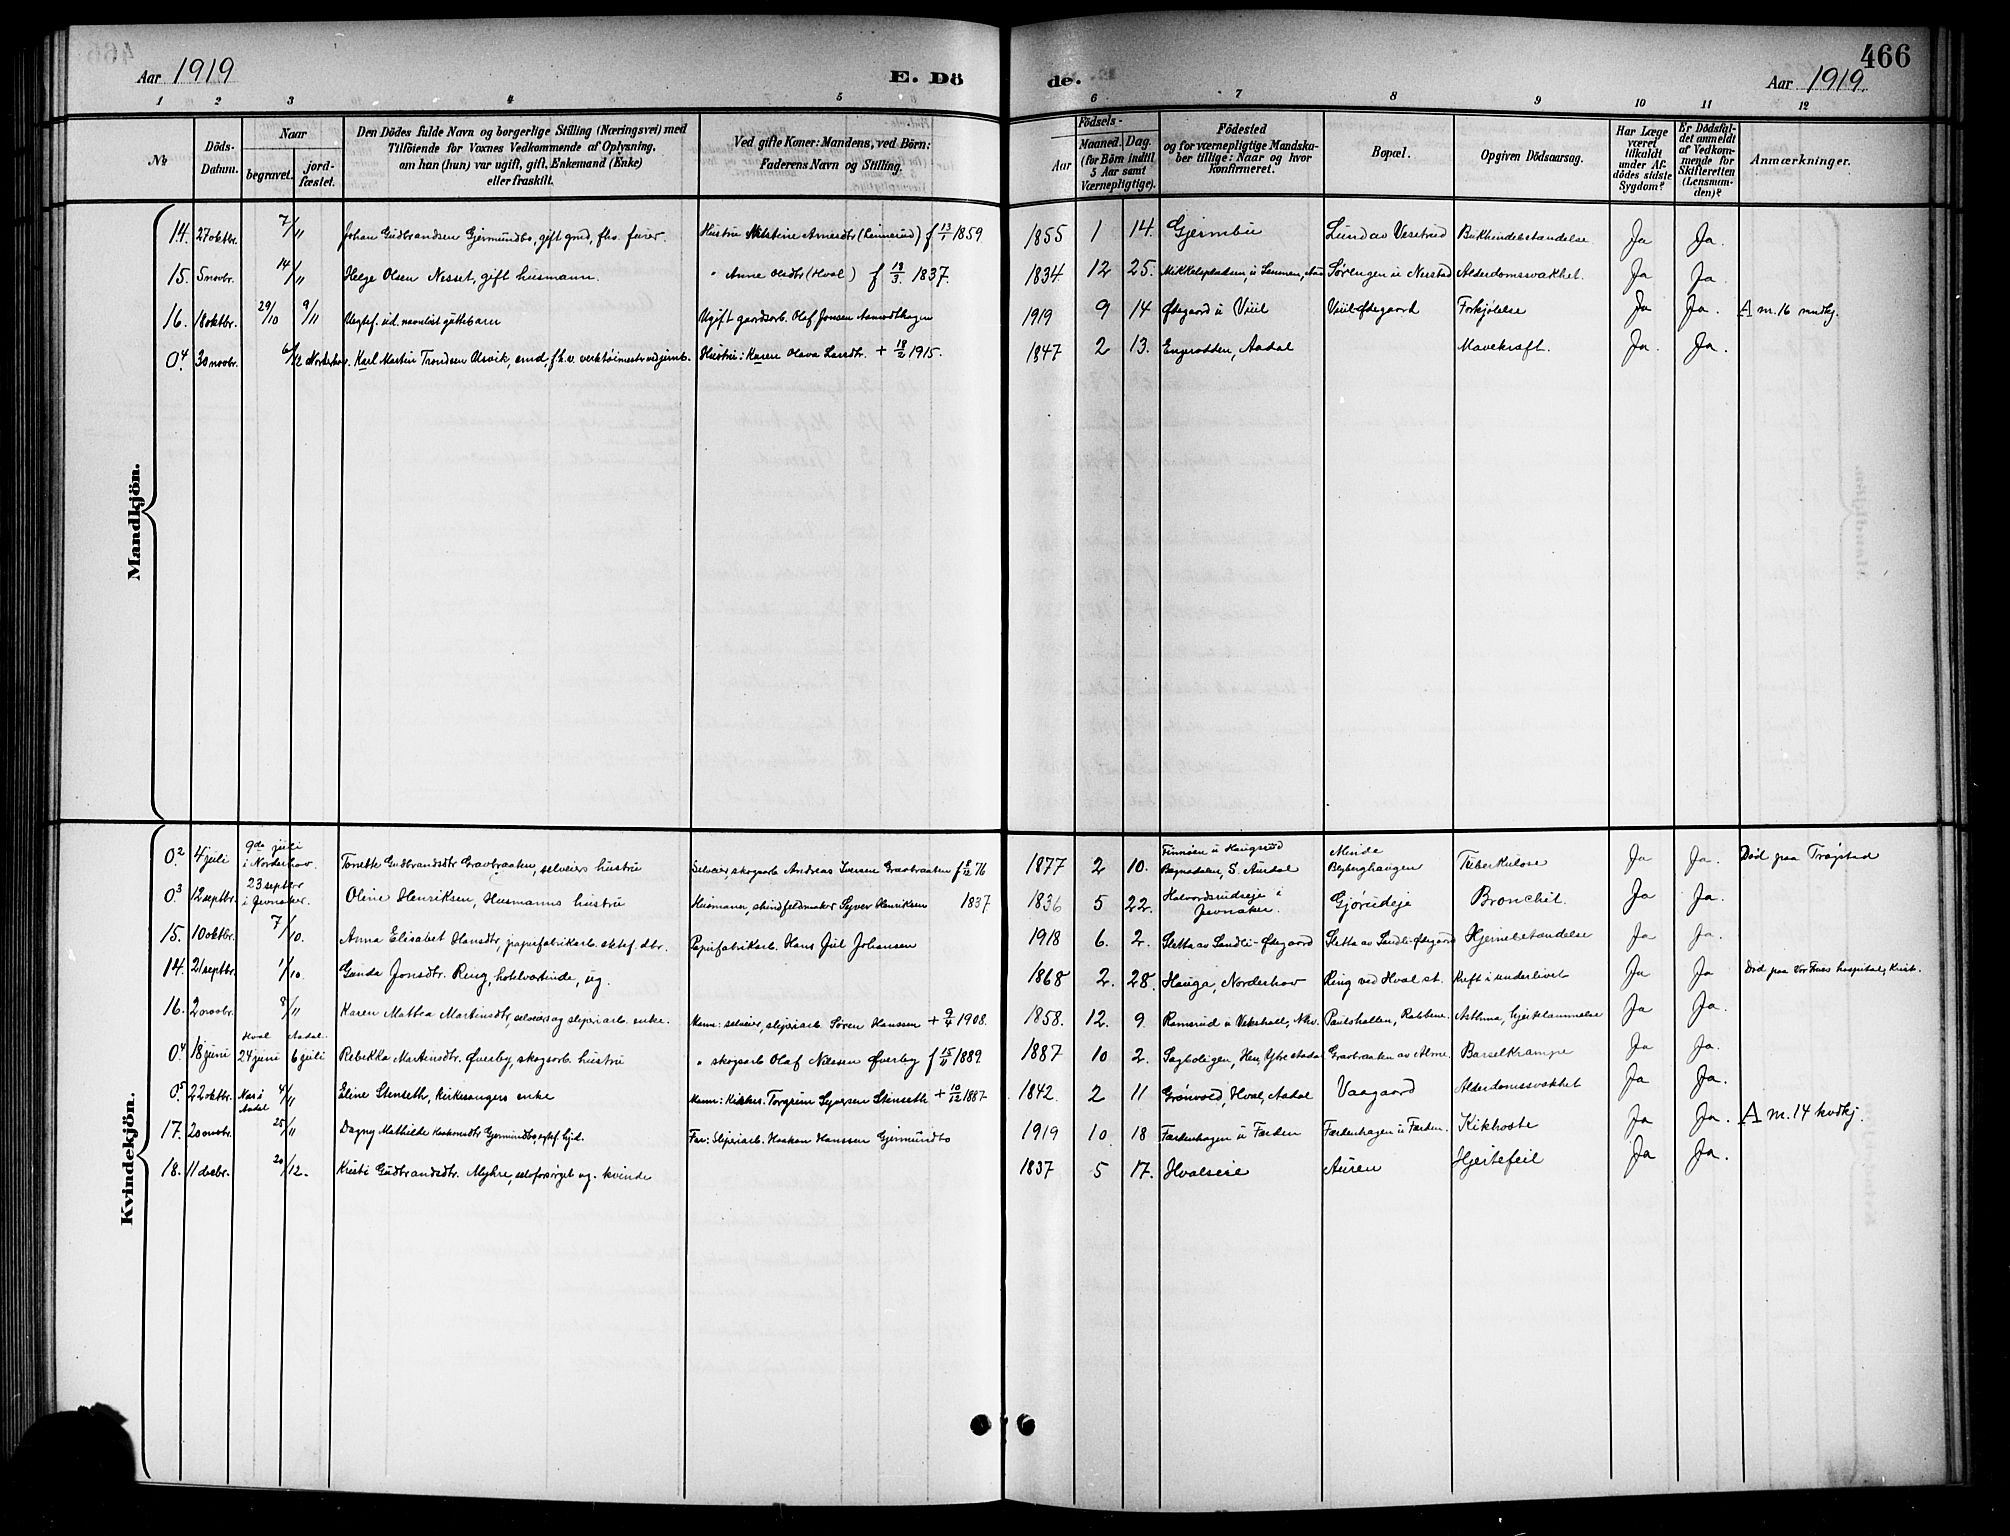 466
Aar 1919
E. Dö
de.
Aar 1919
1 2 3 4 5 6 7 8 9 10 11 12
No
Döds-
Datum.
Naar
begravet.
jord-
fæstet.
Den Dödes fulde Navn og borgerlige Stilling (Næringsvei) med
Tilföiende for Voxnes Vedkommende af Oplysning,
om han (hun) var ugift, gift, Enkemand (Enke)
eller fraskilt.
Ved gifte Koner: Mandens, ved Börn:
Faderens Navn og Stilling.
Födsels-
Aar
Maaned. Dag.
(for Börn indtil
5 Aar samt
Værnepligtige).
Födested
og for værnepligtige Mandska-
ber tillige: Naar og hvor
konfirmeret.
Bopæl.
Opgiven Dödsaarsag.
Har Læge
været
tilkaldt
under Af-
dödes sidste
Sygdom?
Er Dödsfal-
det anmeldt
af Vedkom-
mende for
Skifteretten
(Lensman-
den)?
Anmærkninger.
Mandkjön.
14. 27 oktbr. 7/11 Johan Gudbrandsen Gjermundbo, gift gmd, fhv. furer. Hustru Nilstine Arnesdtr (Linnerud) f 13/1 1859. 1855 1 14. Gjermbu Lunda av Vesetrud Bukhindebetændelse Ja Ja.
15. 5 novbr. 14/11 Helge Olsen Nesset, gift husmann. " Anne Olsdtr (Hval) f 19/3. 1837. 1834 12 25. Sørengen u Nerstad Alderdomssvakhet. Ja Ja.
16. 18 oktbr. 29/10 9/11 Uegtef. ud. navnløst guttebarn Ugift gaardsarb. Olaf Jonsen 1919 9 14 Ødegaard u Viul Viul-Ødegaard Forkjølelse Ja Ja. A m. 16 mndkj.
0.4 30 novbr. 6/12 Norderhov. Karl Martin Trondsen Aasvik, emd, f.h.v. verktøimestr ved jernb. Hustru: Karen Olava Larsdtr. + 18/2 1915. 1847 2 13. Engerodden, Aadal Mavekræft. Ja. Ja.
Kvindekjön.
0.2 4 juli 9de juli
i Norderhov. Tonette Gudbrandsdtr Gravbraaten, selveiers hustru Selveier, skogsarb Andreas Iversen Gravbraaten f 8/12 76 1877 2 10. Finnøen u Haugsrud
Begnadalen, S. Aurdal Minde
Blyberghaugen Tuberkulose Ja Ja. Død paa Trøgstad
0.3 12 septbr. 23 septbr
i Jevnaker. Oline Henriksen, Husmanns hustru Husmann, skindfeldmaker Syver Henriksen 1837. 1836 5 22. Halvordsrudseje i
Jevnaker. Gjørudeje Bronchit. Ja Ja.
15. 10 oktbr. 7/10. Anna Elisabet Hansdtr, papirfabrikarb. ektef. dtr. Papirfabrikarb. Hans Jul Johansen 1918 6. 2. Sletta av Sandli-Ødegaard Sletta av Sandli-Ødegaard Hjernebetændelse Ja Ja.
14. 21 septbr. 1/10. Gunda Jonsdtr. Ring, hotelværtinde, ug. 1868 2. 28. Hauga, Norderhov Ring ved Hval st. Kreft i underlivet Ja Ja Død paa Vor Frues hospital, Krist.
16. 2 novbr. 8/11 Karen Mathea Martinsdtr, selveier og sliperiarb. enke. Mann: selveier, sliperiarb. Søren Hanssen + 9/4 1908. 1858. 12. 9 Ramsrud u Vekshall, Nhv. Paulshallen, Rabbene. Asthma, hjertelammelse Ja Ja.
Hval Aadal.
0.4 18 juni 24 juni 6 juli Rebekka Martinsdtr. Øverby, skogsarb. hustru " skogsarb Olaf Nilssen Øverby f 15/11 1889 1887 10 2. Sagboligen, Hen, Ytre Aadal Gravbraaten av Alme. Barselkrampe Ja Ja.
0.5 22 oktbr. Næs i
Aadal 4/11 Eline Stenseth, kirkesangers enke Mann: Kirkes. Torgrim Syversen Stenseth + 10/12 1887. 1842. 2 11 Grønvold, Hval, Aadal Vaagaard Alderdomssvakhet Ja Ja.
17. 20 novbr. 25/11 Dagny Mathilde Haakonsdtr Gjermundbo, egtef. hjd. Far: Sliperiarb. Haakon Hanssen Gjermundbo 1919 10 18 Færdenhagen u Færden Færdenhagen u Færden. Kikhoste Ja Ja. A m. 14 kvdkj.
18. 11 decbr. 20/12. Kristi Gudbrandsdtr. Myhre, selvforsørget ug. kvinde 1837 5 17. Hvalseie Auren Hjertefeil Ja Ja.